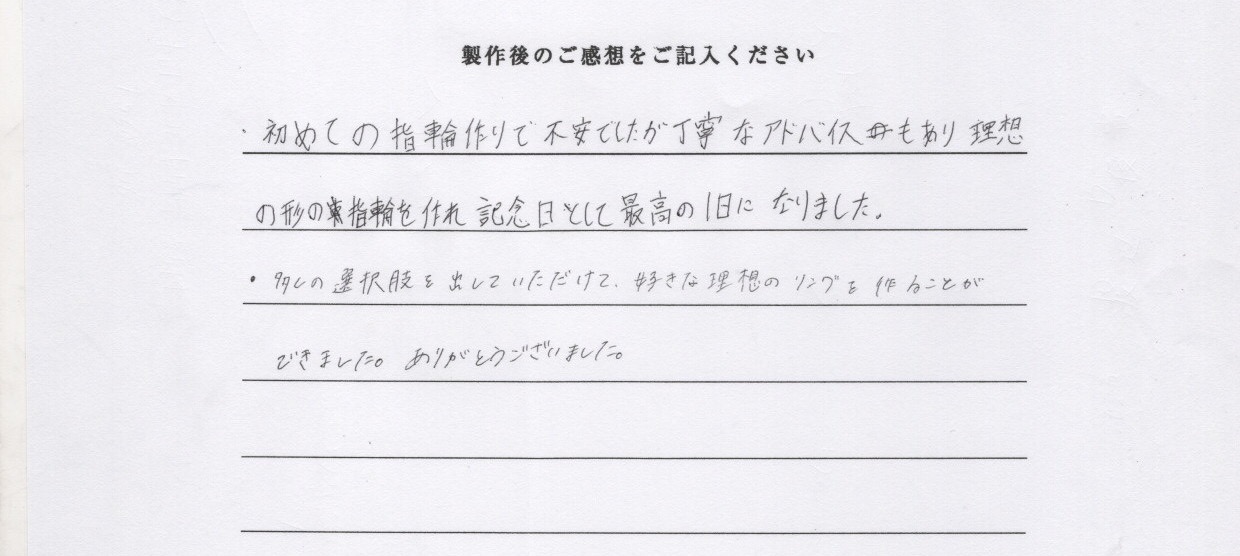 製作後のご感想をご記入ください
・初めての指輪作りで不安でしたが丁寧なアドバイスもあり理想
の形の指輪を作れ記念日として最高の1日になりました。
・多しの選択肢を出していただけて、好きな理想のリングを作ることが
できました。ありがとうございました。